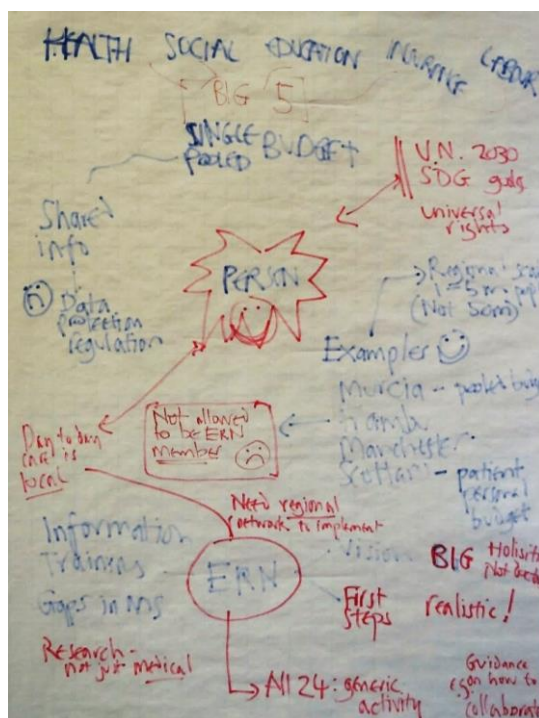 HEALTH SOCIAL EDUCATION INSURANCE LABOUR
BIG 5
SINGLE BUDGET
POOLED
U.N. 2030
SDG goals
universal
rights
Shared
info
Data
protection
regulation
PERSON
Regional
1-5m
(Not 50m)
Examples
Murcia - pooled
Manchester
patient
personal
budget
Not allowed
to be ERN
member
Day to day
care is
local
Need regional
network to implement
Information
Training
Gaps in MS
ERN
Vision BIG
Not
First
steps realistic!
Research -
not just medical
All 24: generic
activity
eg. Guidance
on how to